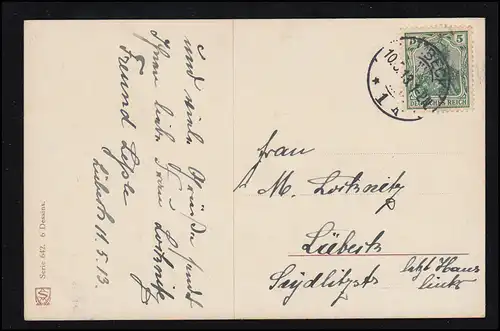 und viele Grüße sendet
Ihnen liebe Frau Lorknitz
Freund
Lübeck 11.5.13.
Serie 642. 6 Dessins.
5
DEUTSCHES REICH
10.5.13
* 1 A
Frau
M. Lorknitz
Lübeck
Seydlitzstr letzt Haus
links